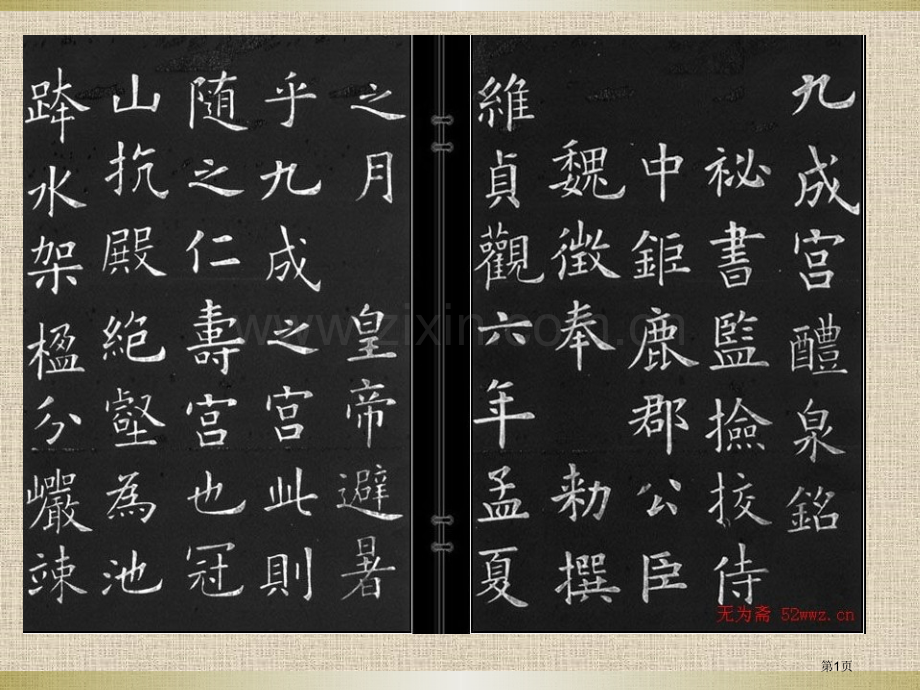 九成宮醴泉銘
祕書監撿挍侍
中鉅鹿郡公臣
魏徵奉 勑撰
維貞觀六年孟夏
之月 皇帝避暑
乎九成之宮此則
随之仁壽宮也冠
山抗殿絕壑為池
跨水架楹分巖竦
www.zixin.com.cn
无为斋 52wwz.cn
第1页